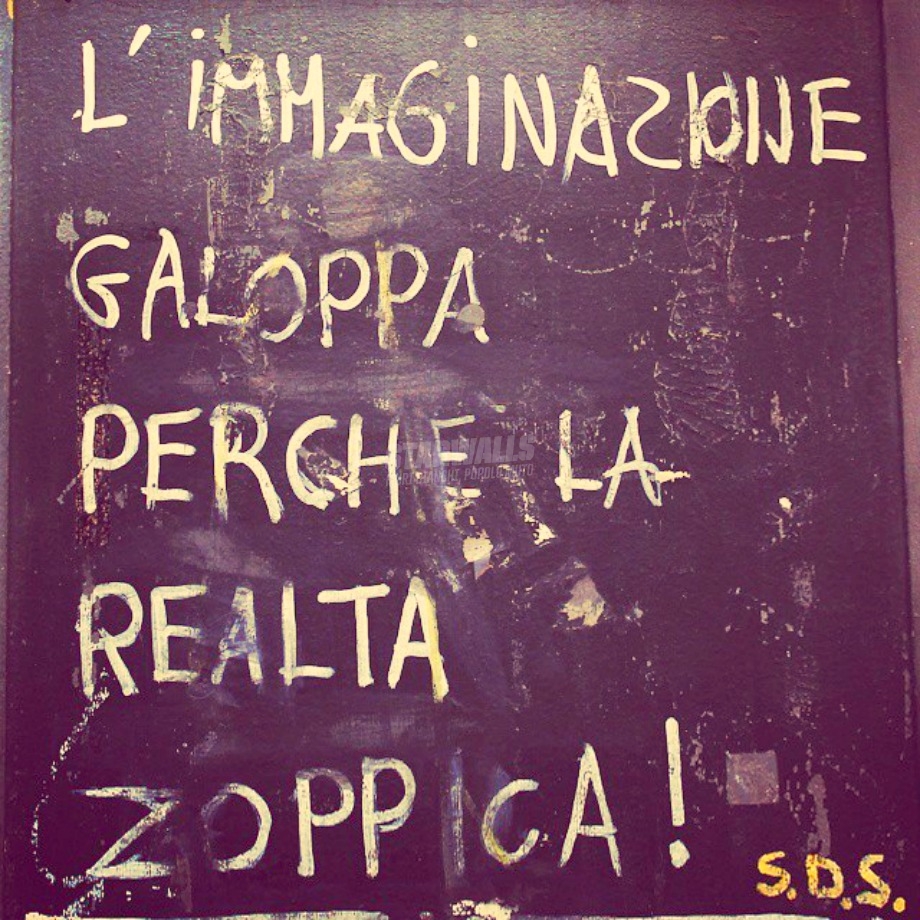 L'iMMAGiNAZIONE
GALOPPA
PERCHE LA
REALTA
ZOPPICA!
S.D.S.
STARWALLS